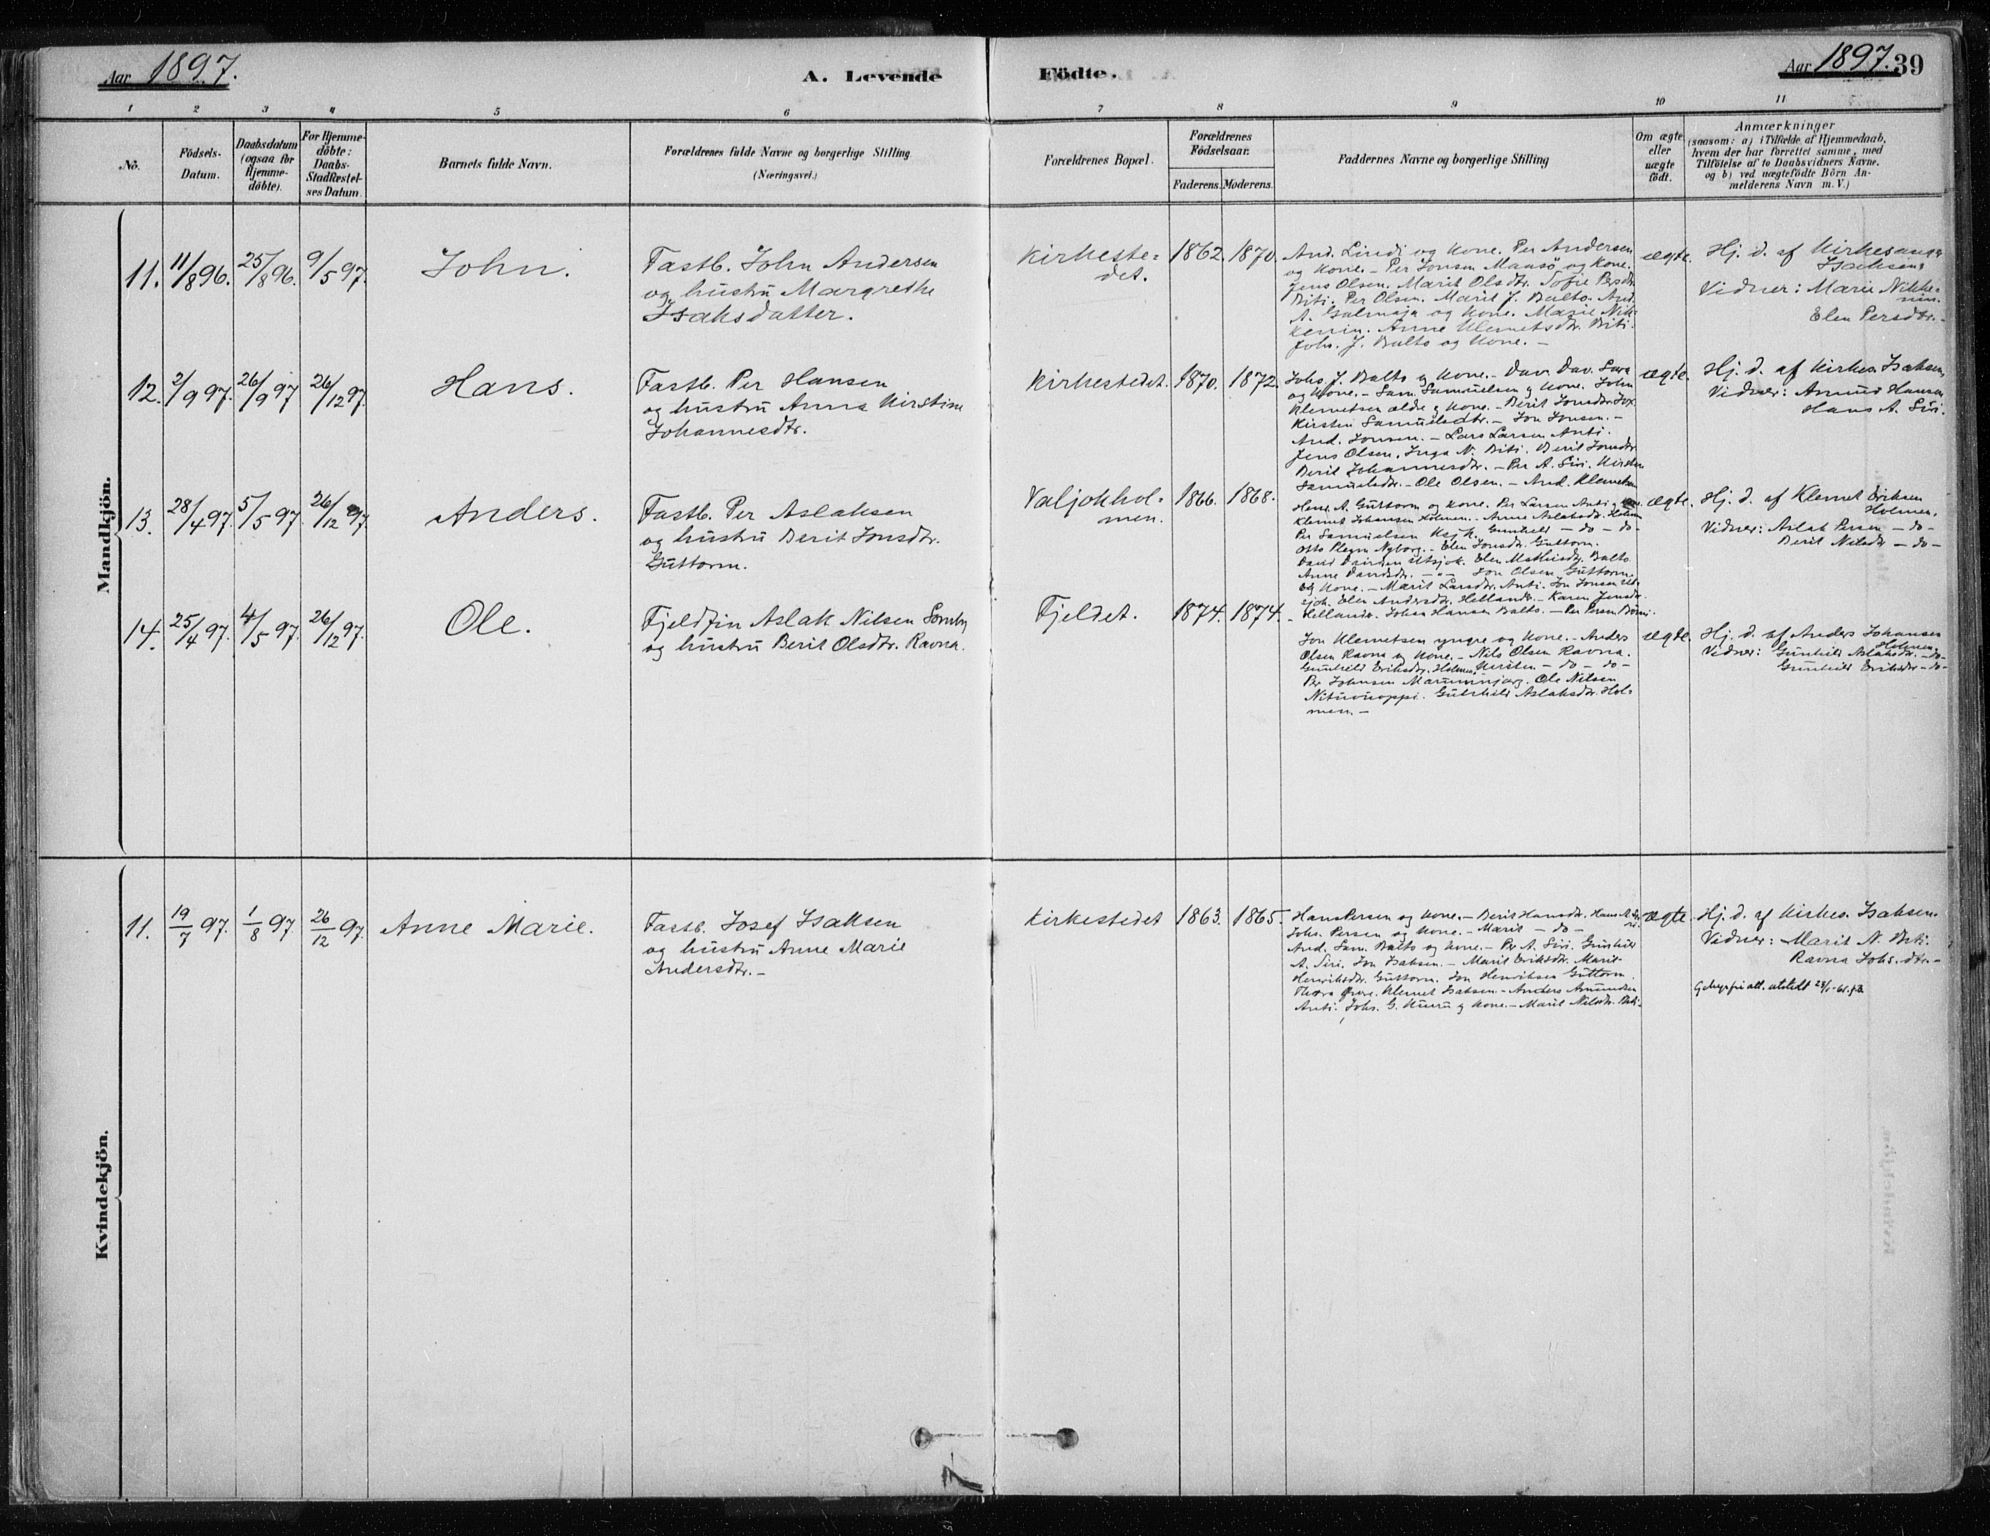 Aar 1897.
A. Levende Födte.
Aar 1897. 39
1 2 3 4 5 6 7 8 9 10 11
No.
Födsels-
Datum.
Daabsdatum
(ogsaa for
Hjemme-
döbte).
For Hjemme-
döbte:
Daabs-
Stadfæstel-
ses Datum.
Barnets fulde Navn.
Forældrenes fulde Navne og borgerlige Stilling
(Næringsvei.)
Forældrenes Bopæl.
Forældrenes
Födselsaar.
Faderens. Moderens.
Faddernes Navne og borgerlige Stilling
Om ægte
eller
uægte
födt.
Anmærkninger
(saasom: a) i Tilfælde af Hjemmedaab,
hvem der har forrettet samme, med
Tilföielse af to Daabsvidners Navne.
og b) ved uægtefödte Börn An-
melderens Navn m. V.)
Mandkjön.
11. 11/8 96. 25/8 96. 9/5 97.
John.
Fastb. John Andersen
og hustru Margrethe
Isaksdatter.
Kirkeste-
det.
1862. 1870.
And. Lindi og Kone. Per Andersen
og Kone. - Per Jonsen Mansö og Kone.
Jens Olsen. Marit Olsdtr. Sofie Persdtr.
Biti. Per Olsen. Marit J. Balto. And.
A. Galmaja og Kone. Marie Nik-
kenin. Anne Klemetsdtr. Biti.
Johs. J. Balto og Kone. -
ægte.
Hj. d. af Kirkesanger
Isaksen,
Vidner: Marie Nikke-
nin.
Elen Persdtr. -
12. 2/9 97. 26/9 97 26/12 97.
Hans.
Fastb. Per Hansen
og hustru Anna Kirstine
Johannesdtr.
Kirkestedet. 1870. 1872.
Johs. J. Balto og Kone. - Dav. Dav. Sara
og Kone. - Sam. Samuelsen og Kone. John
Klemetsen ældre og Kone. - Berit Jonsdtr.
Kirsten Samuelsdtr. - Jon Jonsen. -
And. Jonsen. - Lars Larsen Anti.
Jens Olsen. Inga N. Biti. Berit Jonsdtr.
Berit Johannesdtr. - Per A. Siri. Kirsten
Samuelsdtr. - Ole Olsen. - And. Klemetsen
ægte.
Hj. d. af Kirkes. Isaksen,
Vidner: Amund Hansen
Hans A. Siri.
13. 28/4 97. 5/5 97. 26/12 97.
Anders.
Fastb. Per Aslaksen
og hustru Berit Jonsdtr.
Guttorm.
Valjokhol-
men.
1866. 1868.
Hans A. Guttorm og Kone. Per Larsen Anti og Kone.
Klemet Johansen Holmen. Anne Aslaksdtr. Holmen
Per Samuelsen Gunhild - do - do -
Otto Nyborg. - Elen Jonsdtr. Guttorm.
David Davidsen Utsjok. Elen Mathisdtr. Balto
Anne Davidsdtr. - " - Jon Olsen Guttorm.
og Kone. - Marit Larsdtr. Anti. Jon Jonsen Ut-
sjok. Elen Andersdtr. Hellander. - Karen Jensdtr.
Hellander. Johan Hansen Balto. - Per Persen
ægte.
Hj. d. af Klemet Eriksen
Holmen.
Vidner: Aslak Persen - do -
Berit Nilsdtr - do -
14. 25/4 97. 4/5 97. 26/12 97.
Ole.
Fjeldfin Aslak Nilsen Somby
og hustru Berit Olsdtr. Ravna.
Fjeldet. 1874. 1874.
Jon Klemetsen yngre og Kone. - Anders
Olsen Ravna og Kone. - Nils Olsen Ravna.
Gunhild Eriksdtr. Holmen, Kirsten - do - do -
Per Johnsen Ole Nilsen
Gunhild Aslaksdtr. Hol-
men. -
ægte.
Hj. d. af Anders Johansen
Holmen.
Vidner: Gunhild Aslaksdtr. - do -
Gunhild Eriksdtr - do -
Kvindekjön.
11. 19/7 97. 1/8 97 26/12 97.
Anne Marie.
Fastb. Josef Isaksen
og hustru Anne Marie
Andersdtr. -
Kirkestedet 1863. 1865.
Hans Persen og Kone. - Berit Hansdtr. Hans A. Siri
Johs. Persen og Kone. - Marit - do -
And. Sam. Balto og Kone. - Per A. Siri. Gunhild
A. Siri. Jon Isaksen. - Marit Eriksdtr. Marit
Henriksdtr. Guttorm. Jon Henriksen Guttorm.
Thora Klemet Isaksen - Anders Amundsen
Anti. Johs. G. og Kone. - Marit Nilsdtr. Biti.
ægte.
Hj. d. af Kirkes. Isaksen
Vidner: Marit N. Biti.
Ravna Johs.dtr. -
Gebyrfri att. utstedt